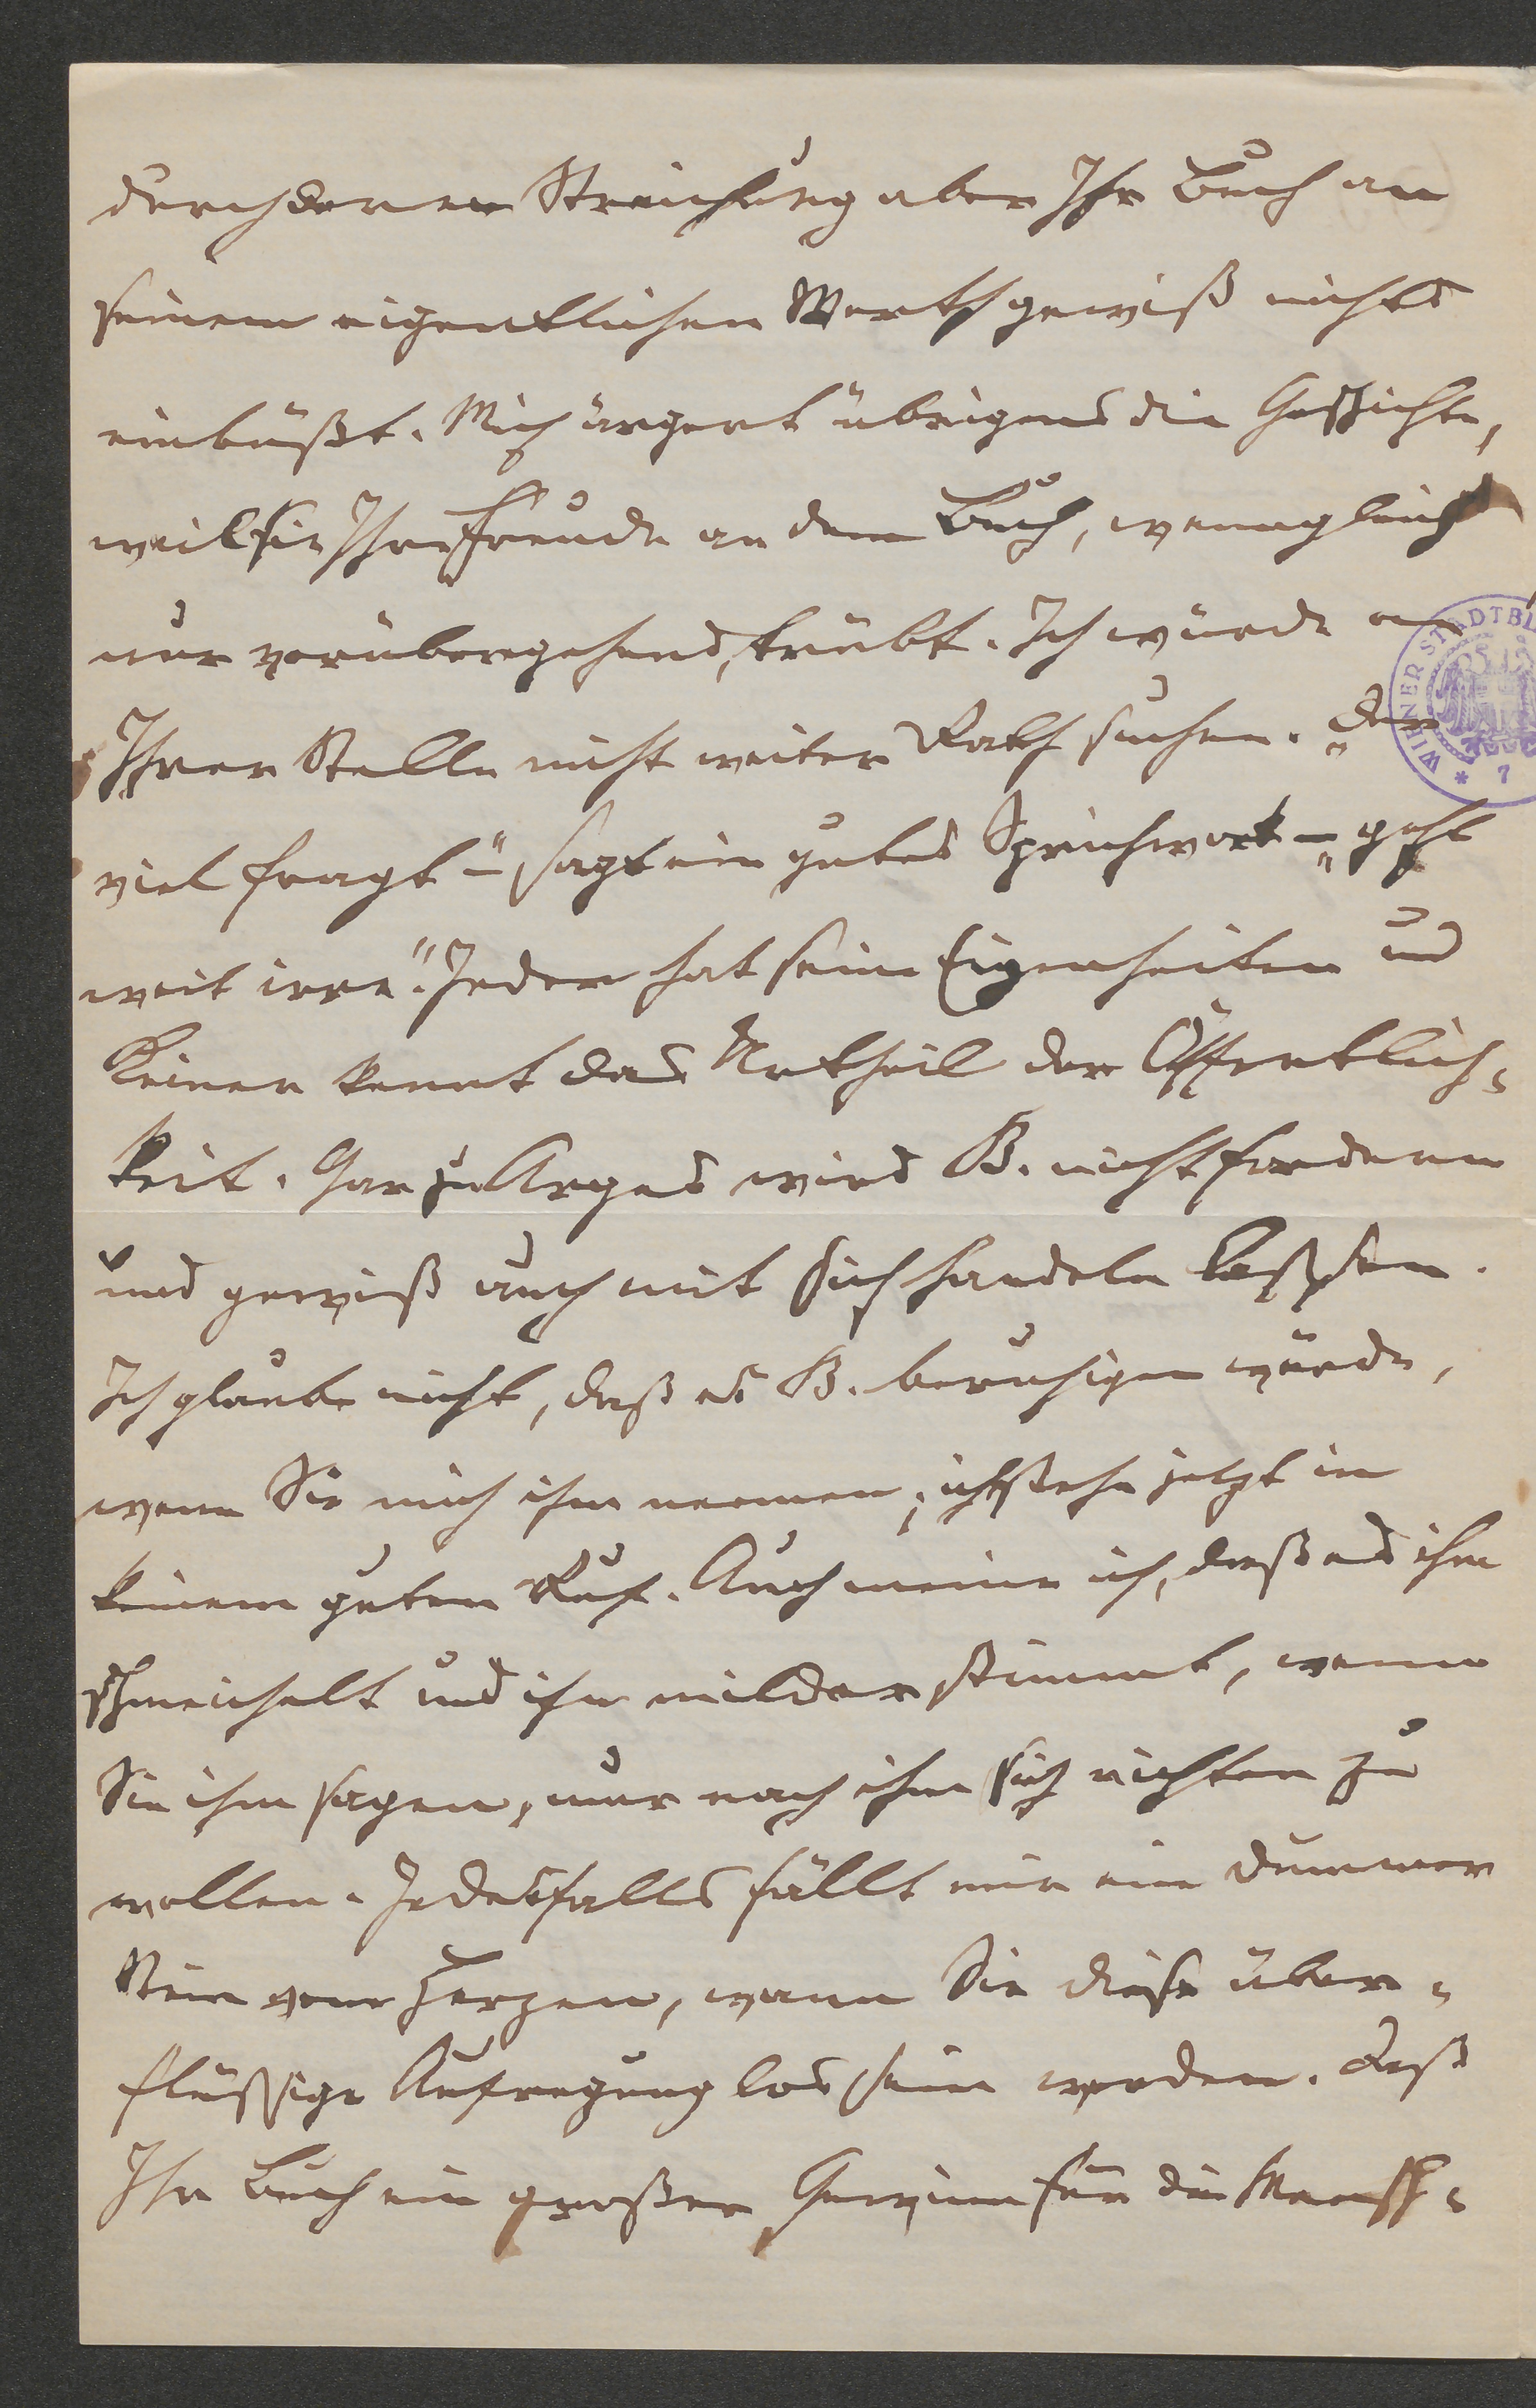 durch deren Streichung aber Ihr Buch an
seinem eigentlichen Werth gewiß nichts
einbüßt. Mich ärgert übrigens die Geschichte,
weil sie Ihre Freude an dem Buch, wenngleich
nur vorübergehend, trübt. Ich würde an
Ihrer Stelle nicht weiter Rath suchen. „Der
viel fragt" – sagt ein gutes Sprichwort – „geht
weit irre." Jeder hat seine Eigenheiten und
Keiner kennt das Urtheil der Öffentlich-
keit. Gar zu Arges wird B. nicht fordern
und gewiß auch mit sich handeln lassen.
Ich glaube nicht, daß es B. beruhigen würde,
wenn Sie mich ihm nennen; ich stehe jetzt in
keinem guten Ruf. Auch meine ich, daß es ihm
schmeichelt und ihn milder stimmt, wenn
Sie ihm sagen, nur nach ihm sich richten zu
wollen. Jedesfalls fällt mir ein dummer
Stein vom Herzen, wann Sie diese über-
flüssige Aufregung los sein werden. Daß
Ihr Buch ein großer Gewinn für die Mensch-
WIENER STADTBI
7